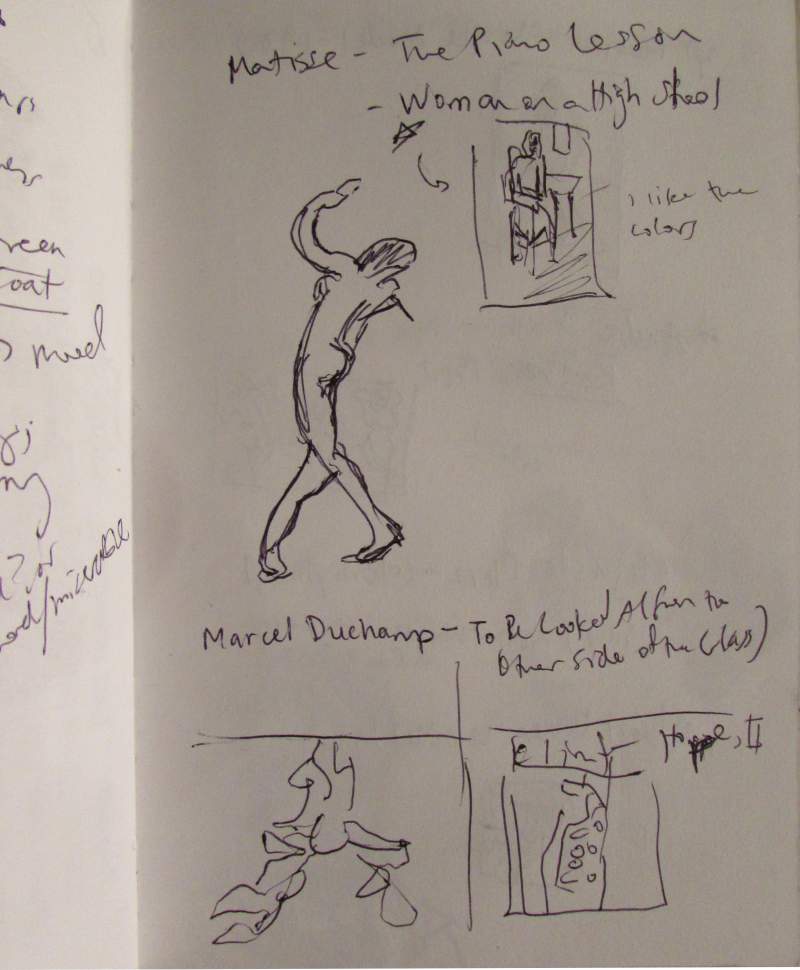 reen
coat
mood
Matisse - The Piano Lesson
- Woman on a High Stool
I like the
colors
Marcel Duchamp - To Be Looked At (from the
Other side of the Glass)
Klimt - Hope, II